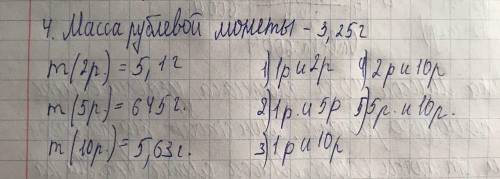 4. Масса рублевой монеты - 3,25г
m(2р) = 5,1г 1) 1р и 2р 4) 2р и 10р
m(5р) = 645г. 2) 1р и 5р 5) 5р. и 10р.
m(10р) = 5,63г. 3) 1р и 10р